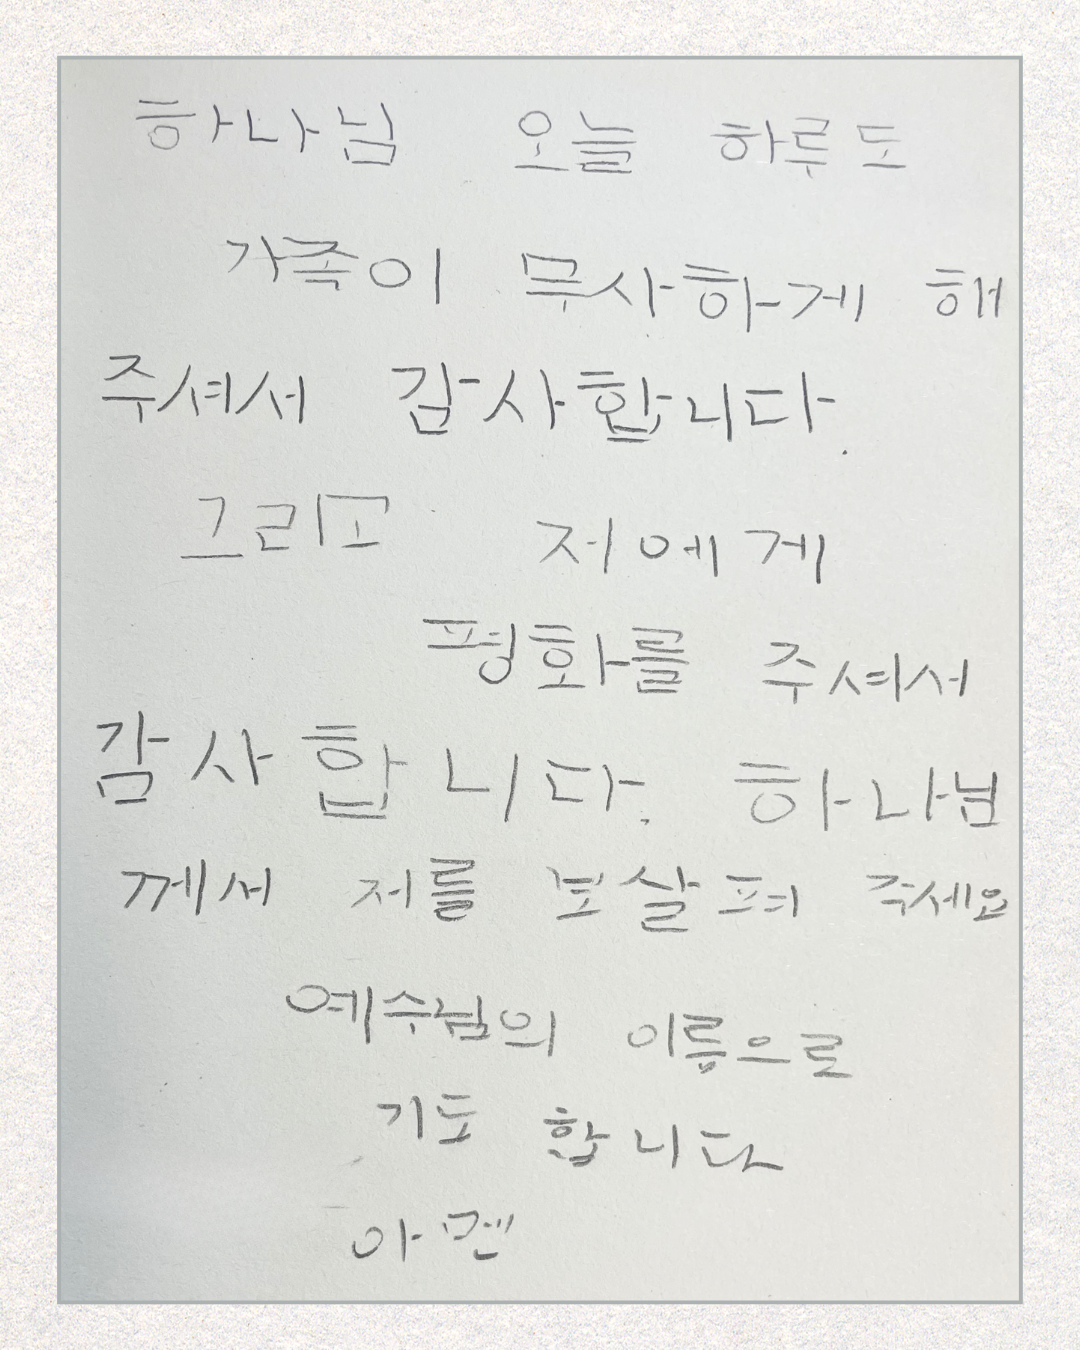 하나님 오늘 하루도
가족이 무사하게 해
주셔서 감사합니다.
그리고 저에게
평화를 주셔서
감사합니다. 하나님
께서 저를 보살펴 주세요
예수님의 이름으로
기도 합니다
아멘